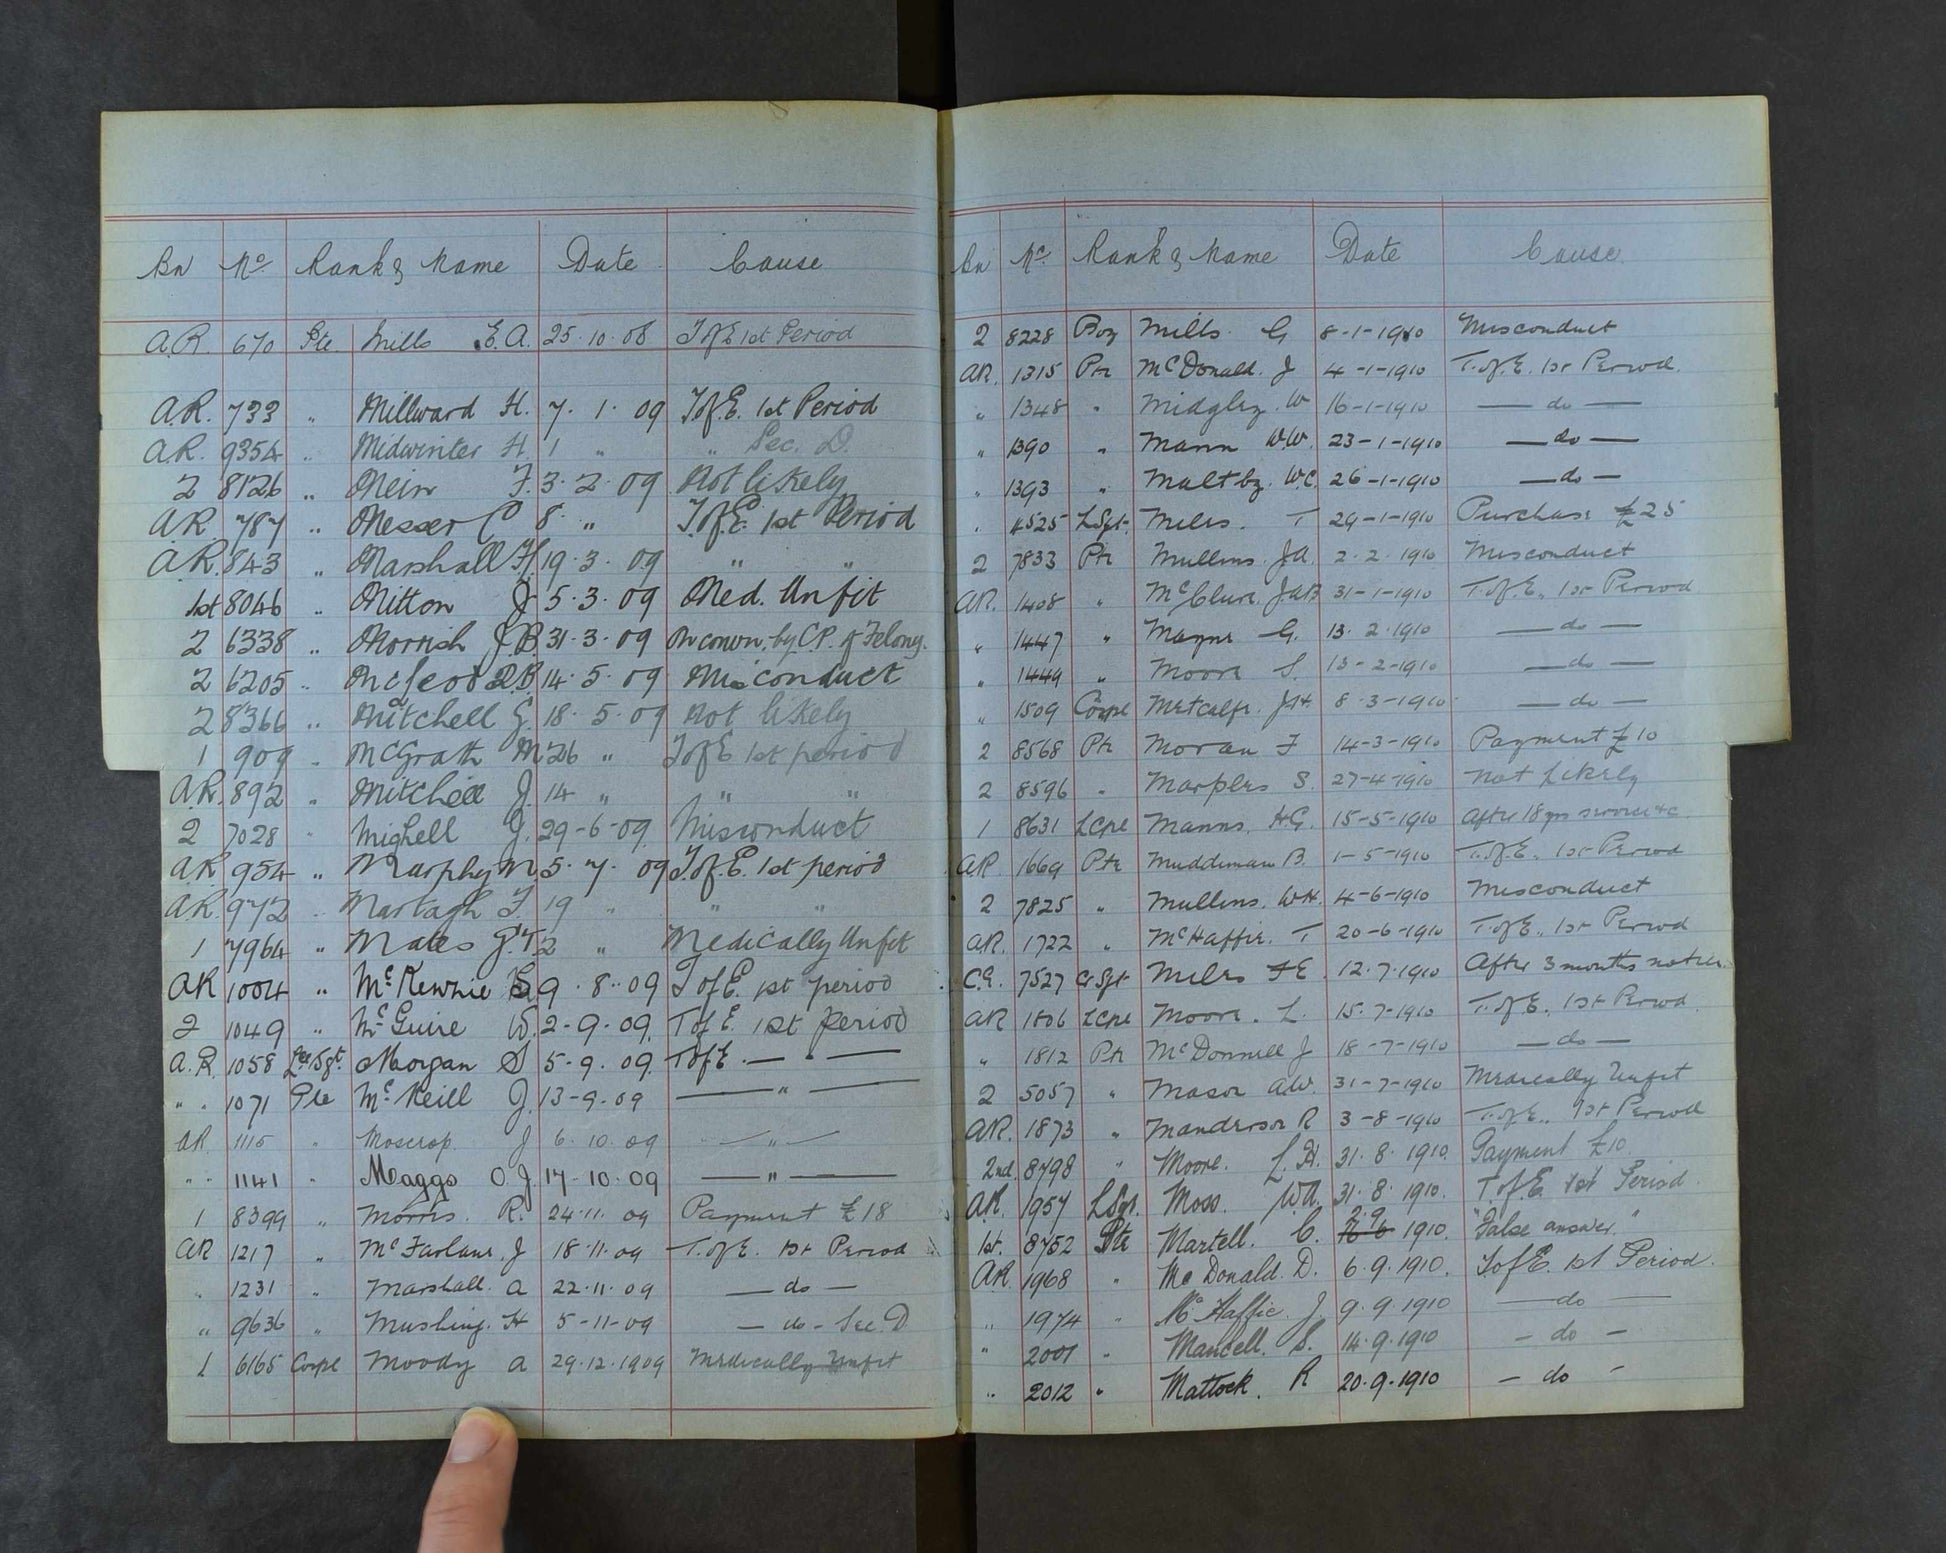 Bn No Rank & Name Date Cause
A.R. 670 Pte. Mills E.A. 25.10.08 T of E 1st Period
A.R. 733 " Millward H. 7.1.09 T of E. 1st Period
A.R. 9354 " Midwinter H. 1 " " Sec. D.
2 8126 " Mein F. 3.2.09 Not likely
A.R. 787 " Messer C 8. " T of E. 1st Period
A.R. 843 " Marshall H. 19.3.09 " "
1st 8046 " Mitton J 5.3.09 Med. Unfit
2 6338 " Morrish J.B. 31.3.09 by C.P. of Felony.
2 6205 " McLeod 14.5.09 Misconduct
2 8366 " Mitchell G. 18.5.09 Not likely
1 909 " McGrath M 26 " T of E 1st period
A.R. 892 " Mitchell J. 14 " " "
2 7028 " Mighell J. 29-6-09. Misconduct
A.R. 954 " Murphy M. 5.7.09 T. of E. 1st period
A.R. 972 " Murtagh F. 19 " " "
1 7964 " Males J.T. 2 " Medically Unfit
AR 1004 " McKewnie 9.8.09 T of E. 1st period
2 1049 " McGuire W. 2-9.09. T of E. 1st period
A.R. 1058 Lce Sgt. Morgan S 5-9.09. T of E. — " —
" " 1071 Pte McNeill J. 13-9-09 — " —
AR 1115 " Moscrop. J 6.10.09 — " —
" " 1141 " Maggs O.J. 17.10.09 — " —
1 8399 " Morris. R. 24.11.09 Payment £18
AR 1217 " McFarlane. J 18.11.09 T. of E. 1st Period
" 1231 " Marshall. A 22.11.09 — do —
" 9636 " H 5-11-09 — do - Sec. D
1 6165 Corpl Moody A 29.12.1909 Medically Unfit
Bn No. Rank & Name Date Cause.
2 8228 Boy Mills G 8-1-1910 Misconduct
AR. 1315 Pte McDonald. J 4-1-1910 T. of E. 1st Period.
" 1348 " Midgley. W 16-1-1910 — do —
" 1390 " Mann W.W. 23-1-1910 — do —
" 1393 " Maltby. W.C. 26-1-1910 — do —
" 4525 L Sgt. Miles. T 29-1-1910 Purchase £25
2 7833 Pte Mullins. J.A. 2.2.1910 Misconduct
AR. 1408 " McClure. J.A.B 31-1-1910 T. of E., 1st Period.
" 1447 " Mayne G. 13.2.1910 — do —
" 1449 " Moore S. 13-2-1910 — do —
" 1509 Corpl Metcalfe. J.H 8-3-1910 — do —
2 8568 Pte Moran F 14-3-1910 Payment £10
2 8596 " Marples S. 27-4-1910 Not Likely
1 8631 LCpl Manns. H.G. 15-5-1910 After 18 yrs service &c
AR. 1669 Pte Muddiman B. 1-5-1910 T. of E., 1st Period
2 7825 " Mullins. W.H. 4-6-1910 Misconduct
AR. 1722 " McHaffie. T 20-6-1910 T. of E., 1st Period
C.G. 7527 Cr Sgt Miles F E. 12.7.1910 After 3 months notice.
AR 1806 LCpl Moore. L. 15.7-1910 T. of E., 1st Period.
" 1812 Pte McDonnell J 18-7-1910 — do —
2 5057 " Mason A.W. 31-7-1910 Medically Unfit
AR. 1873 " Manderson R 3-8-1910 T. of E., 1st Period
2nd. 8798 " Moore. L.H. 31.8.1910. Payment £10.
AR. 1957 L Sgt. Moss. W.A. 31.8.1910. T of E. 1st Period.
1st. 8752 Pte Martell. C. 2.9. 1910. "False answer."
AR. 1968 " Mc Donald. D. 6.9.1910. T of E. 1st Period.
" 1974 " McHaffie. J. 9.9.1910 — do —
" 2001 " Mancell. S. 14.9.1910 - do -
" 2012 " Mattock. R 20.9.1910 - do -